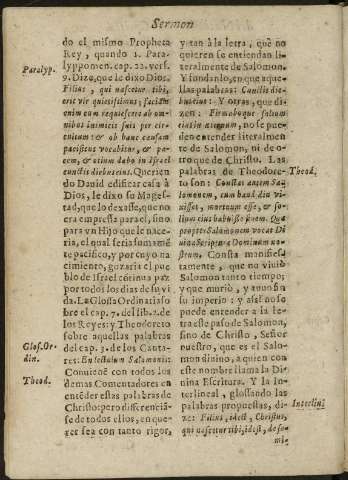 Sermon
do el mismo Propheta
Rey, quando 1. Para-
lyppomen. cap. 22. vers.
9. Dize, que le dixo Dios.
Filius, qui nascetur tibi,
erit vir quietissimus; faciam
enim eum requiescere ab om-
nibus inimicis suis per cir-
cuitum: & ob hanc causam
pacificus vocabitur, & pa-
cem, & otium dabo in Israel
cunctis diebus eius. Querien
do David edificar casa à
Dios, le dixo su Mages-
tad, que lo dexasse, que no
era empressa para el, sino
para vn Hijo que le nace-
ria, el qual seria sumamē
te pacifico, y por cuyo na-
cimiento, gozaria el pue
blo de Israel cōtinua paz
por todos los dias de su vi
da. La Glossa Ordinaria so
bre el cap. 7. del lib. 2. de
los Reyes: y Theodoreto
sobre aquellas palabras
del cap. 3. de los Canta-
res: En lectulum Salomonis:
Convienē con todos los
demas Comentadores en
entēder estas palabras de
Christo: pero differenciā-
se de todos ellos, en que-
rer sea con tanto rigor,
Paralyp.
Glos. Or-
din.
Theod.
y tan à la letra, que no
quieren se entiendan li-
teralmente de Salomon.
Y fundanlo, en que aque-
llas palabras: Cunctis die-
bus eius: Y otras, que di-
zen: Firmaboque solium
eius in æternum, no se pue-
den entender literalmen-
te de Salomon, ni de o-
tro que de Christo. Las
palabras de Theodore-
to son: Constat autem Sa-
lomonem, cum haud diu vi-
xisset, mortuum esse, & so-
lium eius habuisse finem. Qua
propter Salomonem vocat Di
vina Scriptura Dominum no-
strum. Consta manifies-
tamente, que no viviò
Salomon tanto tiempo;
y que muriò, y tuvo fin
su imperio: y assi no se
puede entender a la le-
tra este passo de Salomon,
sino de Christo, Señor
nuestro, que es el Salo-
mon divino, a quien con
este nombre llama la Di-
vina Escritura. Y la In-
terlineal, glossando las
palabras propuestas, di-
ze: Filius, idest, Christus,
qui nascetur tibi, idest, de se-
mi-
Theod.
Interlin;